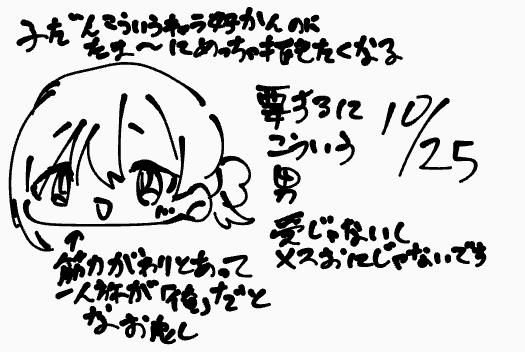 ふだんこういうキャラ好かんのに
たま〜にめっちゃ描きたくなる
要するに
こういう
男
10/25
受じゃないし
メスおにじゃないです
↑
筋力がわりとあって
一人称が「俺」だと
なお良し